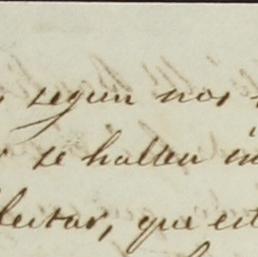 segun nos
se hallen in
lectar, que est